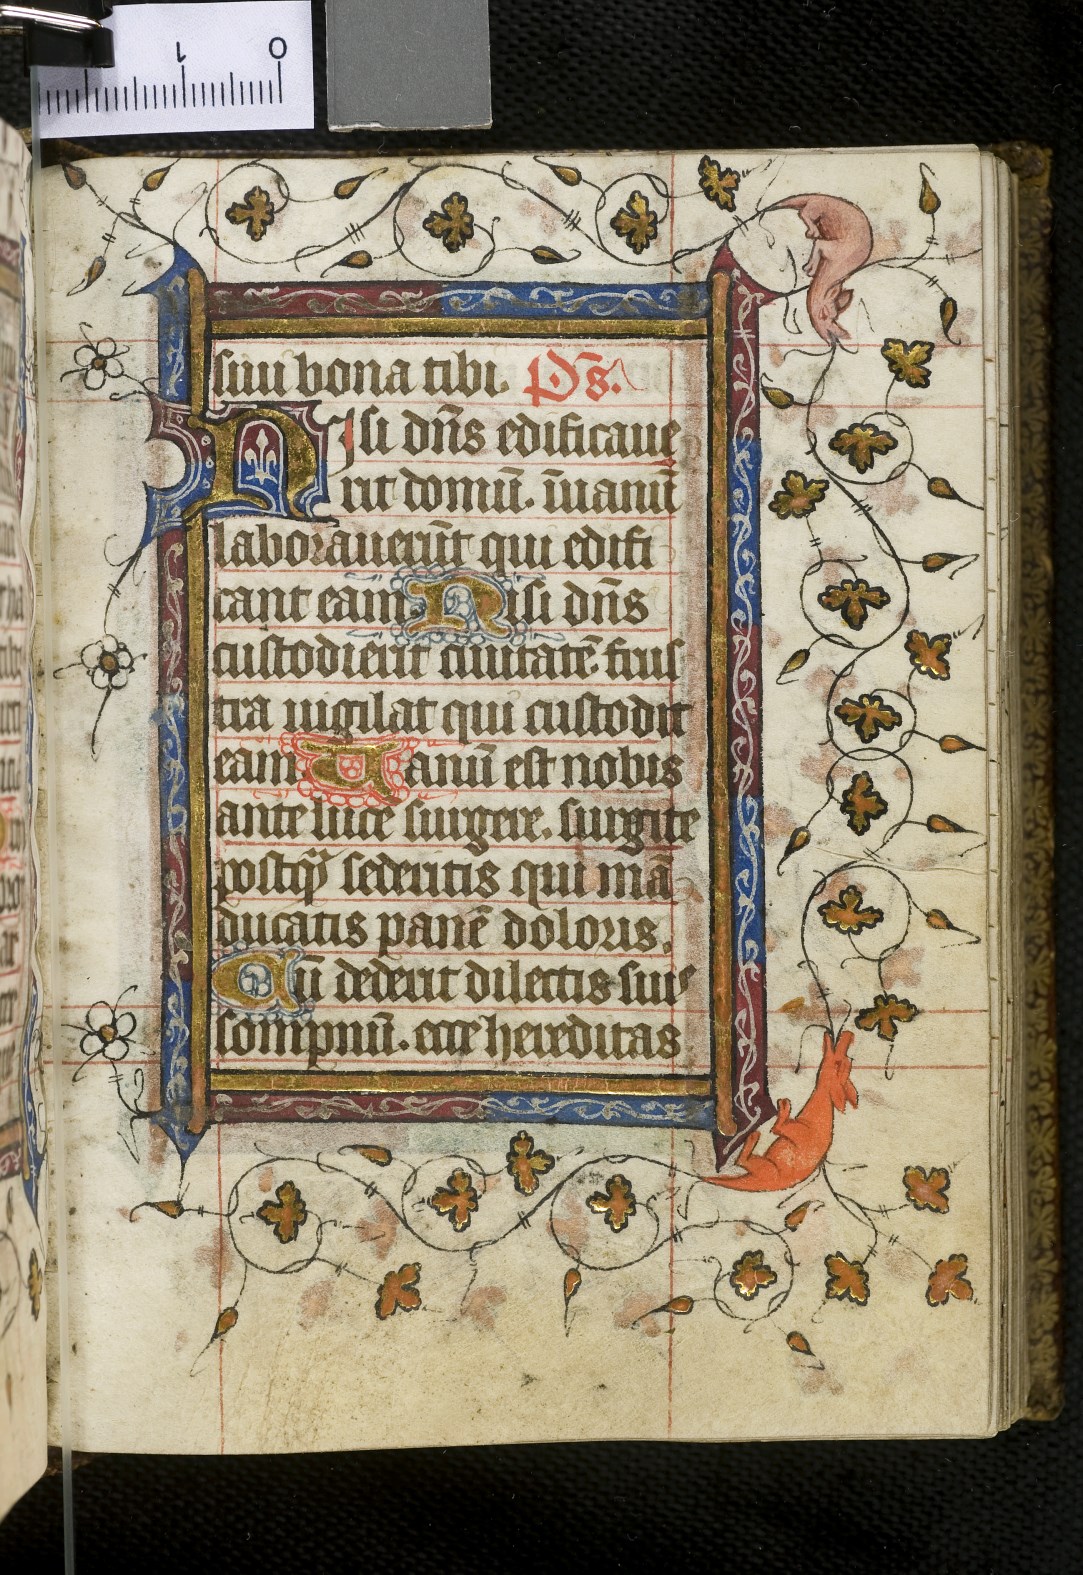 1 0
siui bona tibi. Ps̄.
Nisi dn̄s edificaue
rit domū. īuanū
laborauerūt qui edifi
cant eam Nisi dn̄s
custodierit ciuitatē. frus
tra uigilat qui custodit
eam. Uanū est nobis
ante lucē surgere. surgite
postq̄ȝ sederitis qui mā
ducatis panē doloris.
Cū dederit dilectis suis
sompnū. ecce hereditas